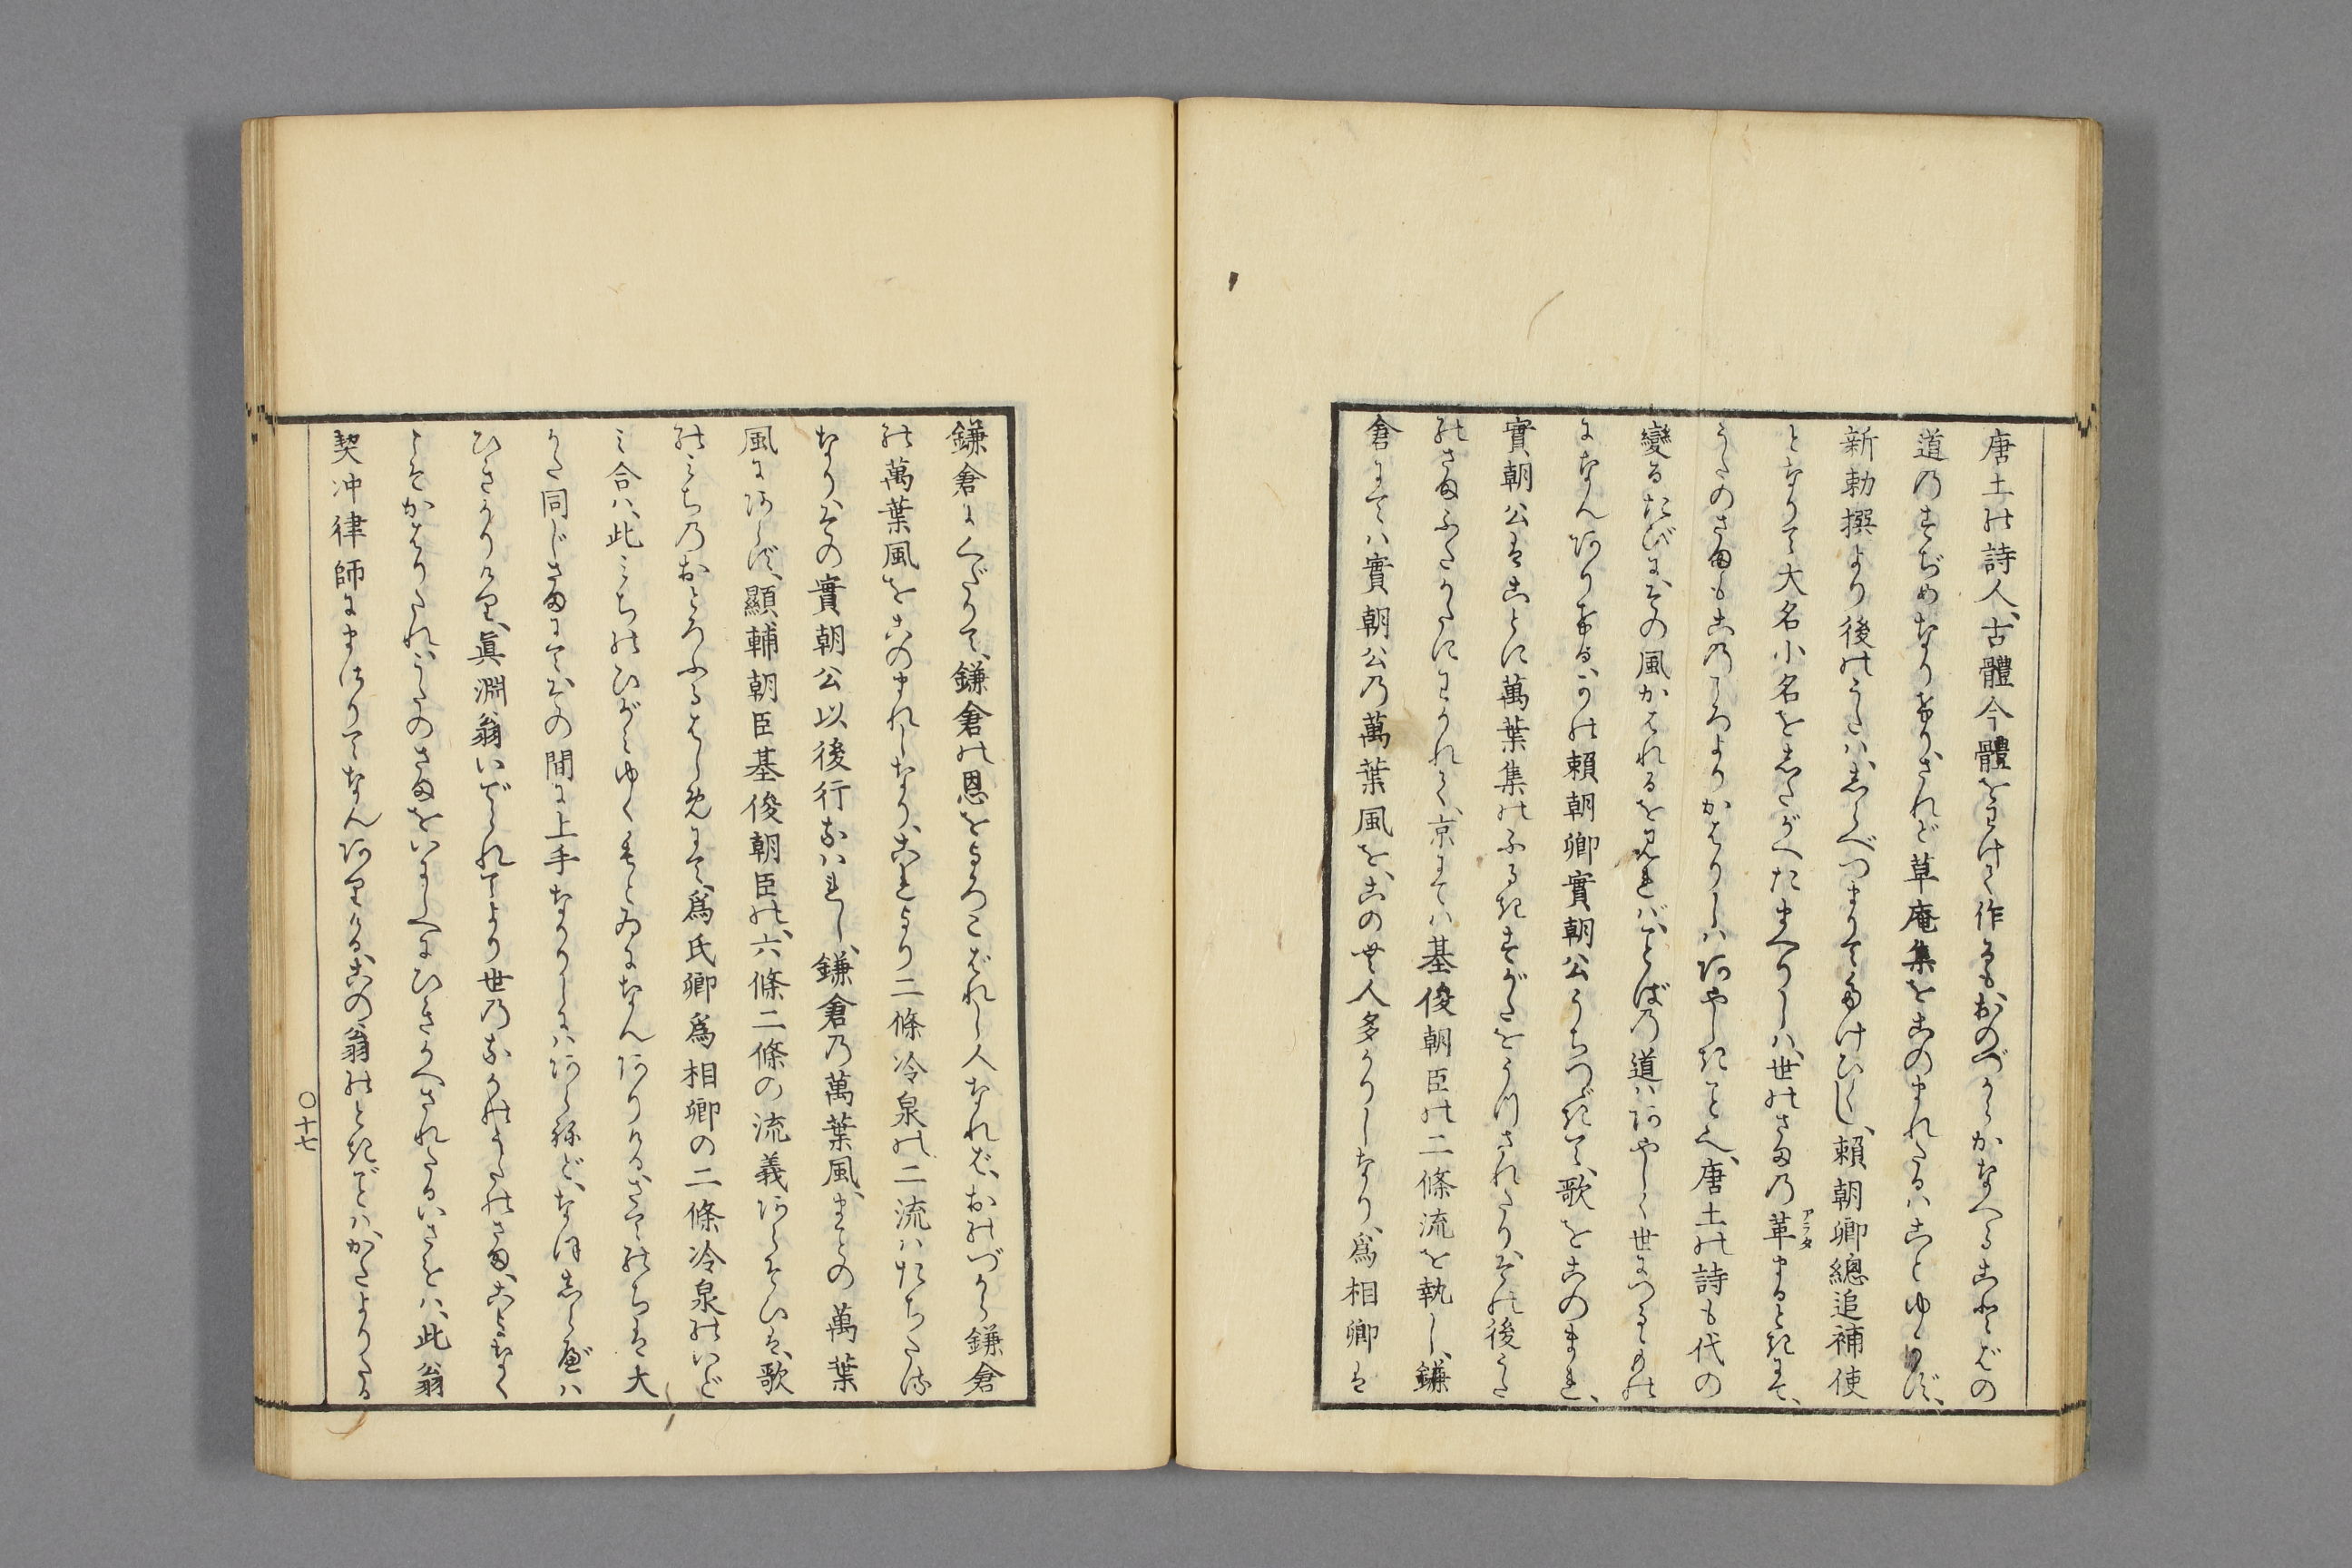 唐土の詩人、古體今體をわけて作るもおのづからかなへることばの
道のすぢめなりけり、されど草庵集をこのまれたるはことゆかず、
新勅撰より後のうたは、しらべつまりてたけひくし、頼朝卿總追補使
となりて大名小名をしたがへたまへりしは、世のさまの革まるときにて、
うたのさまもこのころよりかはりしはあやしきことと、唐土の詩も代の
變るたびにその風かはれるを見れば、ことばの道はあやしく世につるゝもの
になんありける、かの頼朝卿實朝公うちつゞきて、歌をこのまれ、
實朝公はことに萬葉集のふるきすがたをうつされたりその後うた
のさまふたかたにわかれて、京にては基俊朝臣の二條流を執し、鎌
倉にては實朝公の萬葉風を、この世人多かりしなり、爲相卿は
鎌倉にくだりて、鎌倉の恩をよろこばれし人なれば、おのづから鎌倉
の萬葉風をこのまれしなり、これより二條冷泉の二流はたちたる
なり、その實朝公以後行なはれし、鎌倉の萬葉風、まことの萬葉
風にあらず、顯輔朝臣基俊朝臣の、六條二條の流義あらそひは、歌
のみちのおとろふるはじめにて、爲氏卿爲相卿の二條冷泉のいど
み合は、此みちのひがみゆくもとゐになんありける、さてのちは大
かた同じさまにてその間に上手なかりしにはあらねど、なほしらべは
ひきかりけり、眞淵翁いでゝれてより世のなかのうたのさま、こよなく
こそかはりたれ、うたのさまをいにしへにひきかへされたるいさをは、此翁
契冲律師にまけりてなんありける、この翁のときごとは、かたよりたる
〇十七